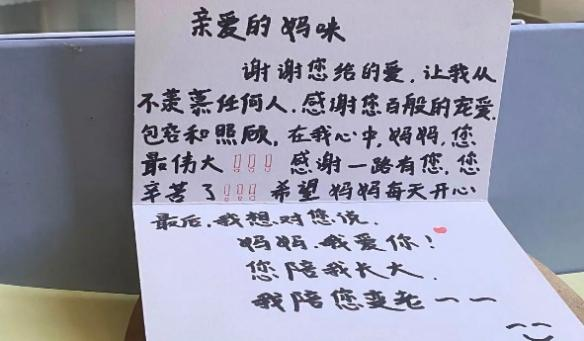 亲爱的妈咪
谢谢您给的爱,让我从
不羡慕任何人.感谢您百般的宠爱.
包容和照顾,在我心中,妈妈,您
最伟大!!! 感谢一路有您,您
辛苦了!!! 希望妈妈每天开心
最后,我想对您说.
妈妈.我爱你!
您陪我长大.
我陪您变老一一